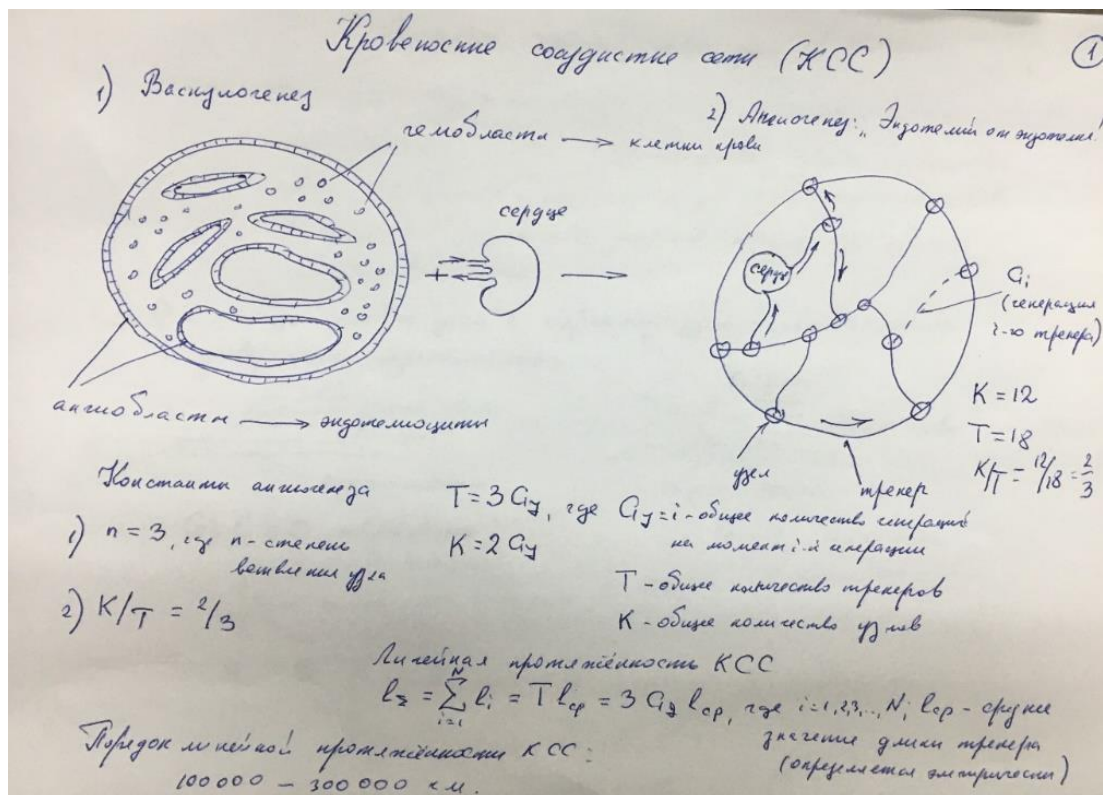 Кровеносные сосудистые сети (КСС)
1
1) Васкулогенез
гемобласты → клетки крови
сердце
ангиобласты → эндотелиоциты
2) Ангиогенез: „Эндотелий от эндотелия"
сердце
Gi
(генерация
i-го тренера)
K = 12
T = 18
K/T = 12/18 = 2/3
узел
тренер
Константы ангиогенеза
1) n = 3, где n - степень
ветвления узла
2) K/T = 2/3
T = 3 Gy, где Gy = i - общее количество генераций
на момент i-й генерации
K = 2 Gy
T - общее количество тренеров
K - общее количество узлов
Линейная протяжённость КСС
lΣ = Σ li = T lср = 3 Gy lср, где i = 1,2,3,..., N; lср - среднее
N
i=1
значение длины тренера
(определяется эмпирически)
Порядок линейной протяжённости КСС:
100 000 – 300 000 км.